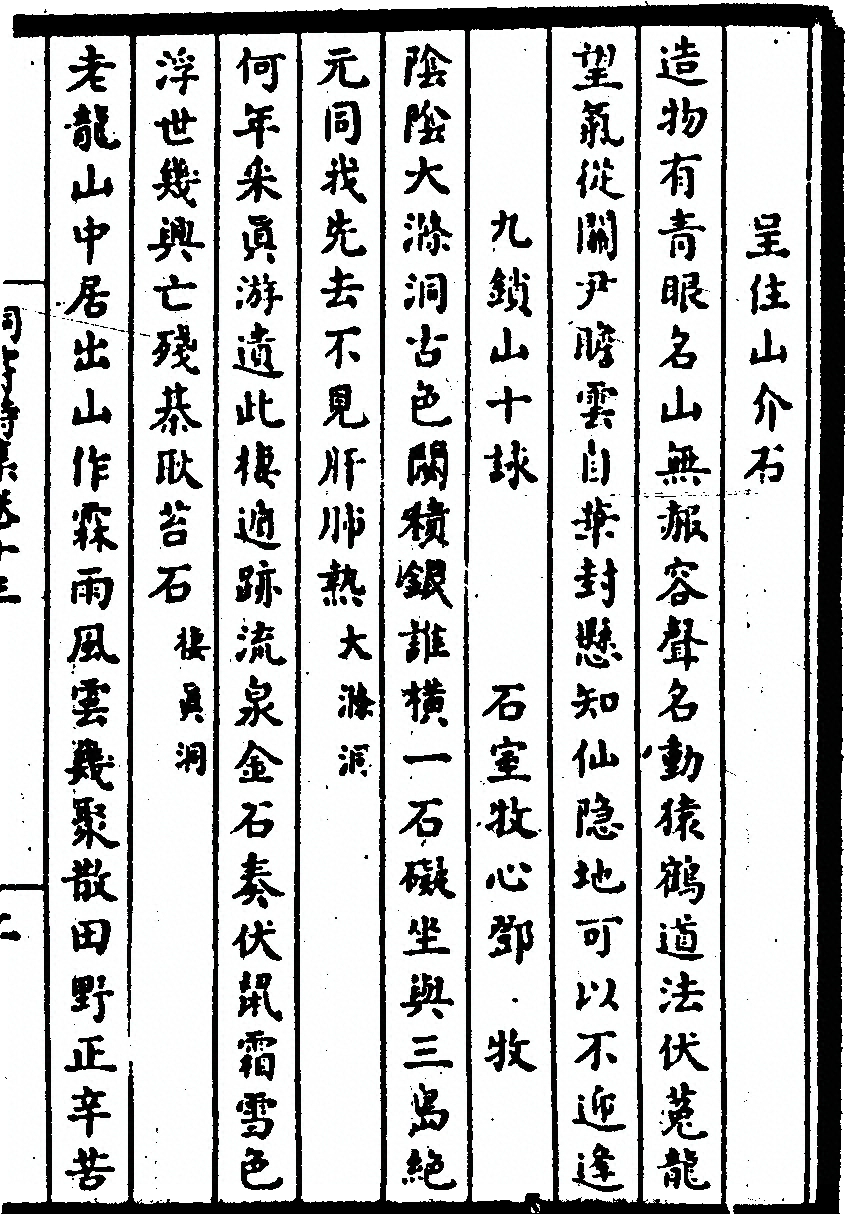 呈住山介石
造物有青眼名山無報容聲名動猿鶴道法伏菟龍
望氣從關尹瞻雲自葉封懸知仙隐地可以不迎逢
九鎖山十詠　石室牧心鄧牧
陰陰大滌洞古色閟積銀誰橫一石礙坐與三島絕
元同我先去不見肝肺熱大滌洞
何年采眞游遺此棲遁跡流泉金石奏伏鼠霜雪色
浮世幾興亡殘棊耿苔石棲眞洞
老龍山中居出山作霖雨風雲幾聚散田野正辛苦
洞霄詩集卷十三
二